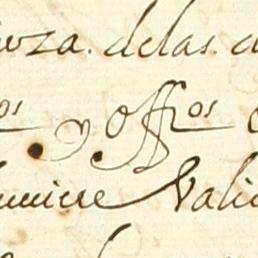 uza. delas. d
os y offos
umiere Vali